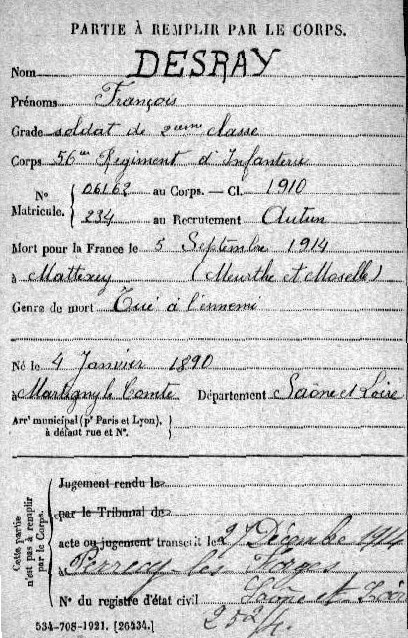 PARTIE À REMPLIR PAR LE CORPS.
Nom DESRAY
Prénoms François
Grade soldat de 2eme classe
Corps 56me Régiment d'Infanterie
N° Matricule. 06162 au Corps. — Cl. 1910
234 au Recrutement Autun
Mort pour la France le 5 Septembre 1914
à Mattexey (Meurthe et Moselle)
Genre de mort Tué à l'ennemi
Né le 4 Janvier 1890
à Martigny le Comte Département Saône et Loire
Arrt municipal (pr Paris et Lyon), à défaut rue et N°.
Cette partie n'est pas à remplir par le Corps.
Jugement rendu le
par le Tribunal de
acte ou jugement transcrit le 27 Décembre 1914
à Perrecy les Forges
N° du registre d'état civil Saône et Loire
252/4.
534-708-1921. [26434.]